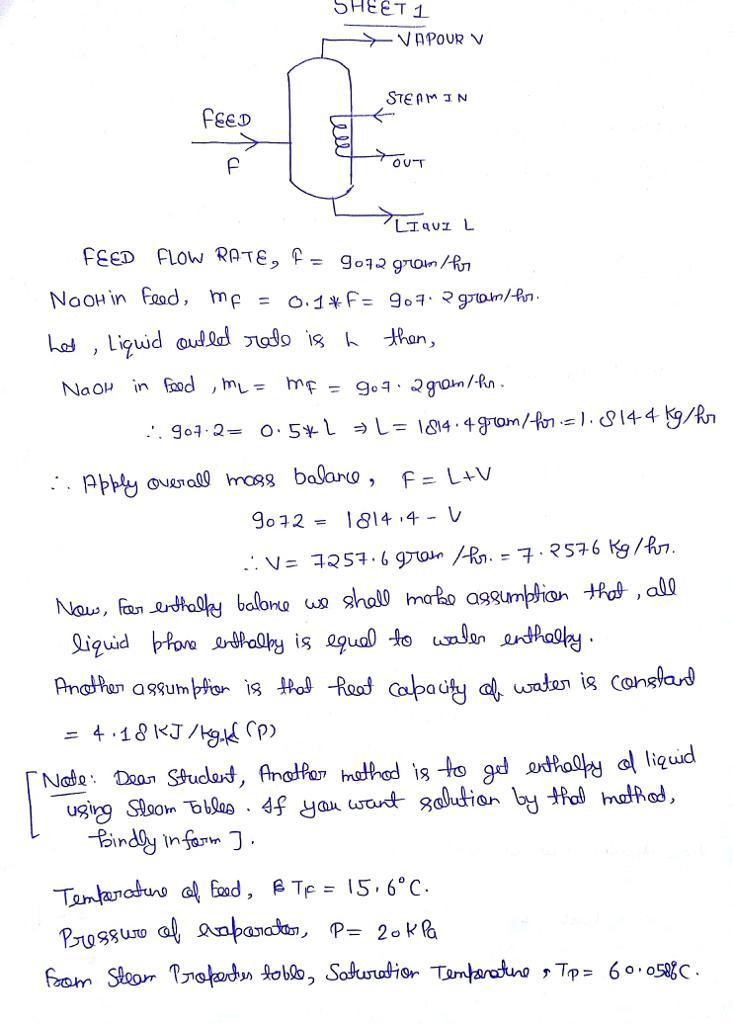 SHEET 1
VAPOUR V
STEAM IN
FEED
F
OUT
LIQUI L
FEED FLOW RATE, F = 9072 gram/hr
NaOH in feed, mF = 0.1*F = 907.2 gram/hr.
Let, Liquid outled rate is L then,
NaOH in feed, mL = mF = 907.2 gram/hr.
∴ 907.2 = 0.5*L ⇒ L = 1814.4 gram/hr. = 1.8144 kg/hr
∴ Apply overall mass balance, F = L+V
9072 = 1814.4 - V
∴ V = 7257.6 gram/hr. = 7.2576 kg/hr.
Now, For enthalpy balance we shall make assumption that, all
liquid phase enthalpy is equal to water enthalpy.
Another assumption is that heat capacity of water is constant
= 4.18 KJ/kg.K (P)
[Note: Dear Student, Another method is to get enthalpy of liquid
using Steam Tables. If you want solution by that method,
kindly inform].
Temperature of feed, TF = 15.6°C.
Pressure of evaporator, P = 20 kPa
From Steam Properties table, Saturation Temperature, TP = 60.058°C.